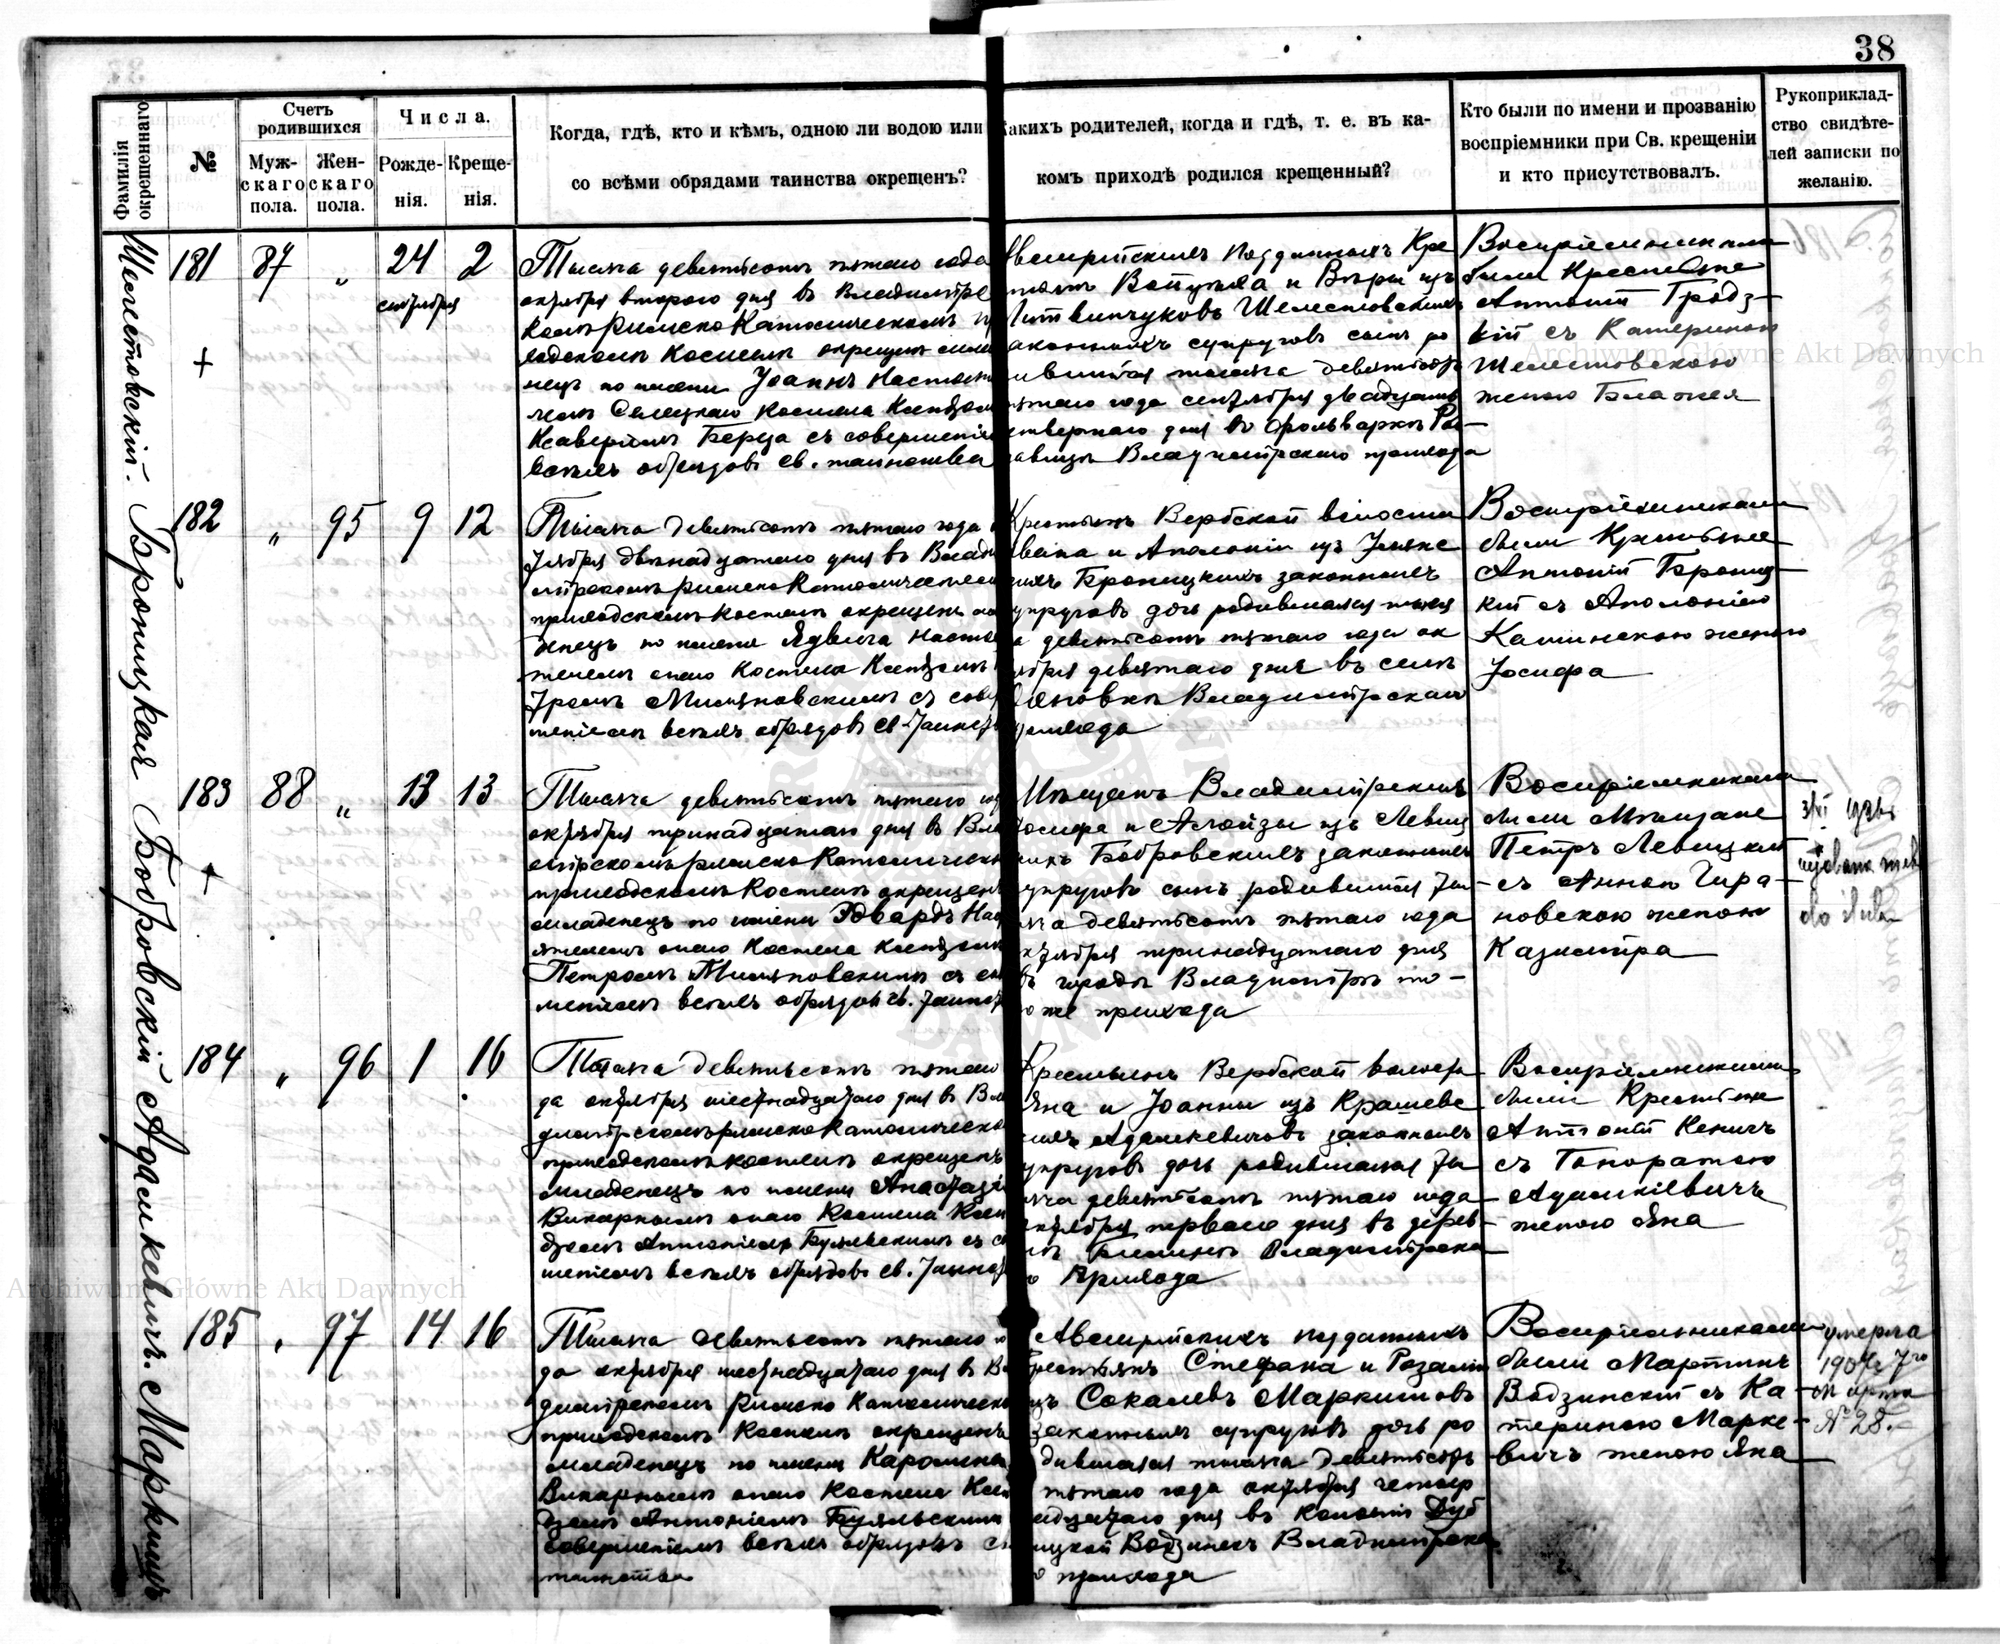 38
Фамилія окрещеннаго.
№
Счетъ родившихся
Муж-
скаго
пола.
Жен-
скаго
пола.
Числа.
Рожде-
нія.
Креще-
нія.
Когда, гдѣ, кто и кѣмъ, одною ли водою или
со всѣми обрядами таинства окрещенъ?
Какихъ родителей, когда и гдѣ, т. е. въ ка-
комъ приходѣ родился крещенный?
Кто были по имени и прозванію
воспріемники при Св. крещеніи
и кто присутствовалъ.
Рукоприклад-
ство свидѣте-
лей записки по
желанію.
Шелестовскій.
181 87 „ 24 2
сентября
Тысяча девятьсотъ пятаго года
октября второго дня въ Владимiр
комъ Римско Католическомъ
ходскомъ костелѣ окрещенъ мла
нецъ по имени Іоаннъ Настоят
лемъ Селецкаго костела Ксендзом
Ксаверiемъ с совершенiе
всѣхъ обрядовъ св. таинства
Австрiйскихъ подданныхъ Кре
Войцѣха и Вѣры изъ
Литвинчуковъ Шелестовскихъ
аконныхъ супруговъ сынъ ро
ившiйся тысяча девятьсотъ
ятаго года сентября двадцать
етвертаго дня въ фольваркѣ
Владимiрскаго прихода
Воспрiемниками
были Крестьяне
Антонiй Гродз-
кiй съ Катериною
Шелестовскою
женою Блажея
Броницкая
182 „ 95 9 12
Тысяча девятьсотъ пятаго года
тября двѣнадцатаго дня въ Влади
мiрскомъ Римско Католическомъ
приходскомъ костелѣ окрещенъ мла
енецъ по имени Ядвига Настоя
телемъ онаго костела Ксендзомъ
тромъ съ сове
шенiемъ всѣхъ обрядовъ св. Таинств
Крестьянъ Вербской волости
вана и Аполонiи изъ
скихъ Броницкихъ законныхъ
упруговъ дочь родившаяся тыся
а девятьсотъ пятаго года ок
ября девятаго дня въ селѣ
Владимiрскаго
рихода
Воспрiемниками
были Крестьяне
Антонiй Брониц-
кiй съ Аполонiею
Каминскою женою
Iосифа
Бобровскій
183 88 „ 13 13
Тысяча девятьсотъ пятаго го
октября тринадцатаго дня въ Вла
мiрскомъ Римско Католическо
приходскомъ костелѣ окрещенъ
младенецъ по имени Эдвардъ Нас
ятелемъ онаго костела Ксендзомъ
Петромъ съ со
шенiемъ всѣхъ обрядовъ св. Таинст
Мѣщанъ Владимiрскихъ
осифа и Алойзы изъ Левиц
кихъ Бобровскихъ законныхъ
упруговъ сынъ родившiйся ты-
яча девятьсотъ пятаго года
ктября тринадцатаго дня
въ городѣ Владимiрѣ то-
о же прихода
Воспрiемниками
были Мѣщане
Петръ Левицкiй
съ Анною Гура-
новскою женою
Казимiра
Адамкевичъ.
184 „ 96 1 16
Тысяча девятьсотъ пятаго
да октября шестнадцатаго дня въ Вла
димiрскомъ Римско Католическо
приходскомъ костелѣ окрещенъ
младенецъ по имени Анастазiя
Викарнымъ онаго костела Ксен
дзомъ Антонiемъ съ со
шенiемъ всѣхъ обрядовъ св. Таинст
Крестьянъ Вербской волости
Яна и Іоанны изъ Крашевс
кихъ Адамкевичовъ законныхъ
упруговъ дочь родившаяся ты
яча девятьсотъ пятаго года
октября перваго дня въ дерев-
нѣ Владимiрска
о прихода
Воспрiемниками
были Крестьяне
Антонiй Кеничъ
съ Гоноратою
Адамкiевичъ
женою Яна
Маркишъ
185 „ 97 14 16
Тысяча девятьсотъ пятаго
да октября шестнадцатаго дня въ Вл
димiрскомъ Римско Католическо
приходскомъ костелѣ окрещенъ
младенецъ по имени Каролина
Викарнымъ онаго костела Ксен
дзомъ Антонiемъ
совершенiемъ всѣхъ обрядовъ св
таинства
Австрiйскихъ подданныхъ
Крестьянъ Стефана и Розалiи
изъ Сокалевъ Маркишовъ
законныхъ супруговъ дочь ро
дившаяся тысяча девятьсотъ
пятаго года октября четыр
надцатаго дня въ Колонiи Дуб
ницкой Водзинекъ Владимiрска
о прихода
Воспрiемниками
были Мартинъ
Водзинскiй съ Ка-
териною Марке-
вичъ женою Яна
умерла
1907 г. 7го
марта
№ 28.
Archiwum Główne Akt Dawnych
Archiwum Główne Akt Dawnych